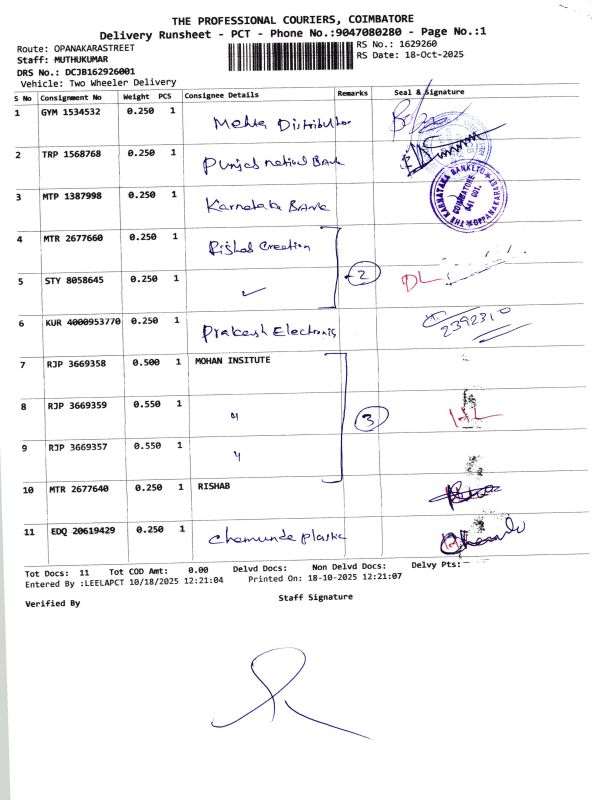 THE PROFESSIONAL COURIERS, COIMBATORE
Delivery Runsheet - PCT - Phone No.:9047080280 - Page No.:1
Route: OPANAKARASTREET
RS No.: 1629260
Staff: MUTHUKUMAR
RS Date: 18-Oct-2025
DRS No.: DCJB162926001
Vehicle: Two Wheeler Delivery
S No Consignment No Weight PCS Consignee Details Remarks Seal & Signature
1 GYM 1534532 0.250 1 Mehta Distributor
2 TRP 1568768 0.250 1 Punjab national Bank
3 MTP 1387998 0.250 1 Karnataka Bank
THE KARNATAKA BANK LTD. OPPANAKARAST COIMBATORE 641 001.
4 MTR 2677660 0.250 1 Rishab Creation
2
5 STY 8058645 0.250 1 ✓ DL
6 KUR 4000953770 0.250 1 Prakash Electronis
2392310
7 RJP 3669358 0.500 1 MOHAN INSITUTE
8 RJP 3669359 0.550 1 "
3
9 RJP 3669357 0.550 1 "
10 MTR 2677640 0.250 1 RISHAB
11 EDQ 20619429 0.250 1 Chamunda plastic
Tot Docs: 11 Tot COD Amt: 0.00 Delvd Docs: Non Delvd Docs: Delvy Pts:
Entered By :LEELAPCT 10/18/2025 12:21:04 Printed On: 18-10-2025 12:21:07
Verified By Staff Signature